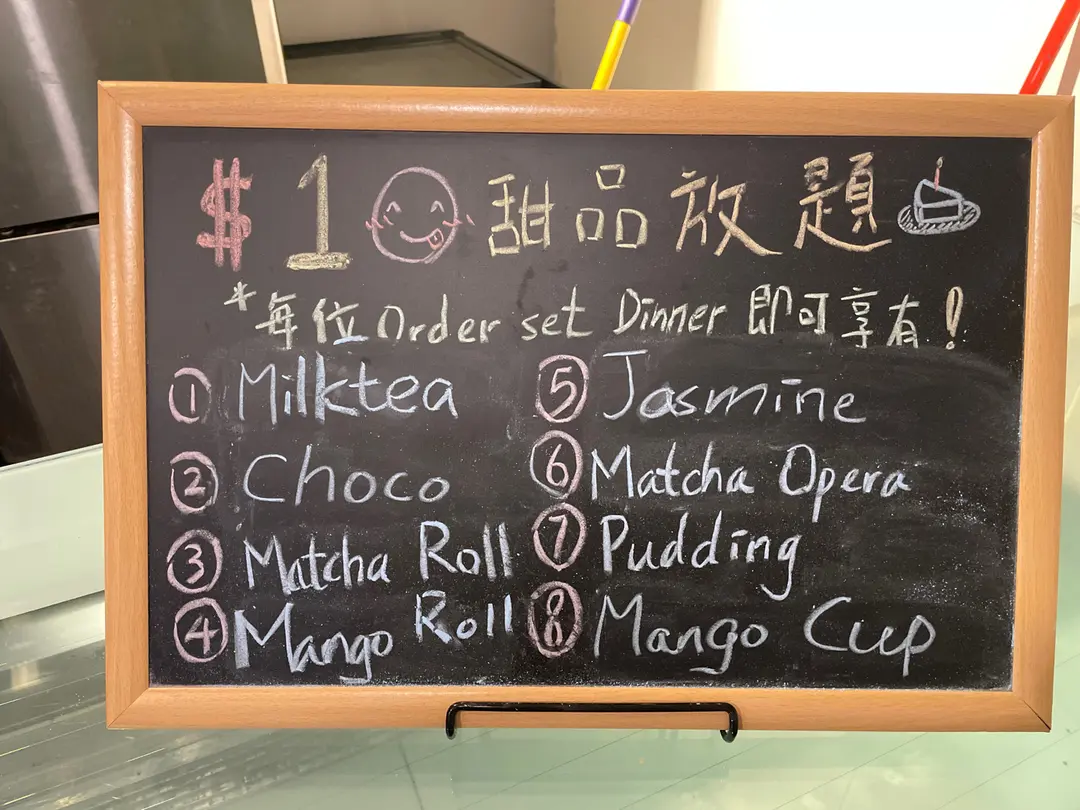 $1 甜品放題
*每位Order set Dinner 即可享有！
① Milktea
② Choco
③ Matcha Roll
④ Mango Roll
⑤ Jasmine
⑥ Matcha Opera
⑦ Pudding
⑧ Mango Cup